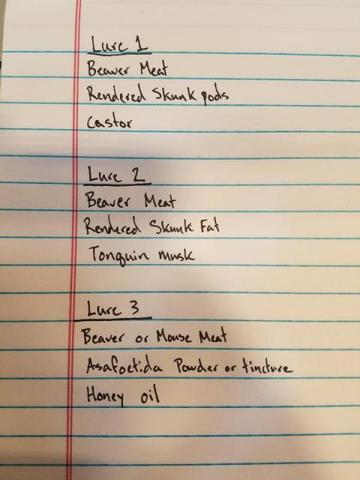 Lure 1
Beaver Meat
Rendered Skunk pods
Castor
Lure 2
Beaver Meat
Rendered Skunk Fat
Tonquin musk
Lure 3
Beaver or Mouse Meat
Asafoetida Powder or tincture
Honey oil